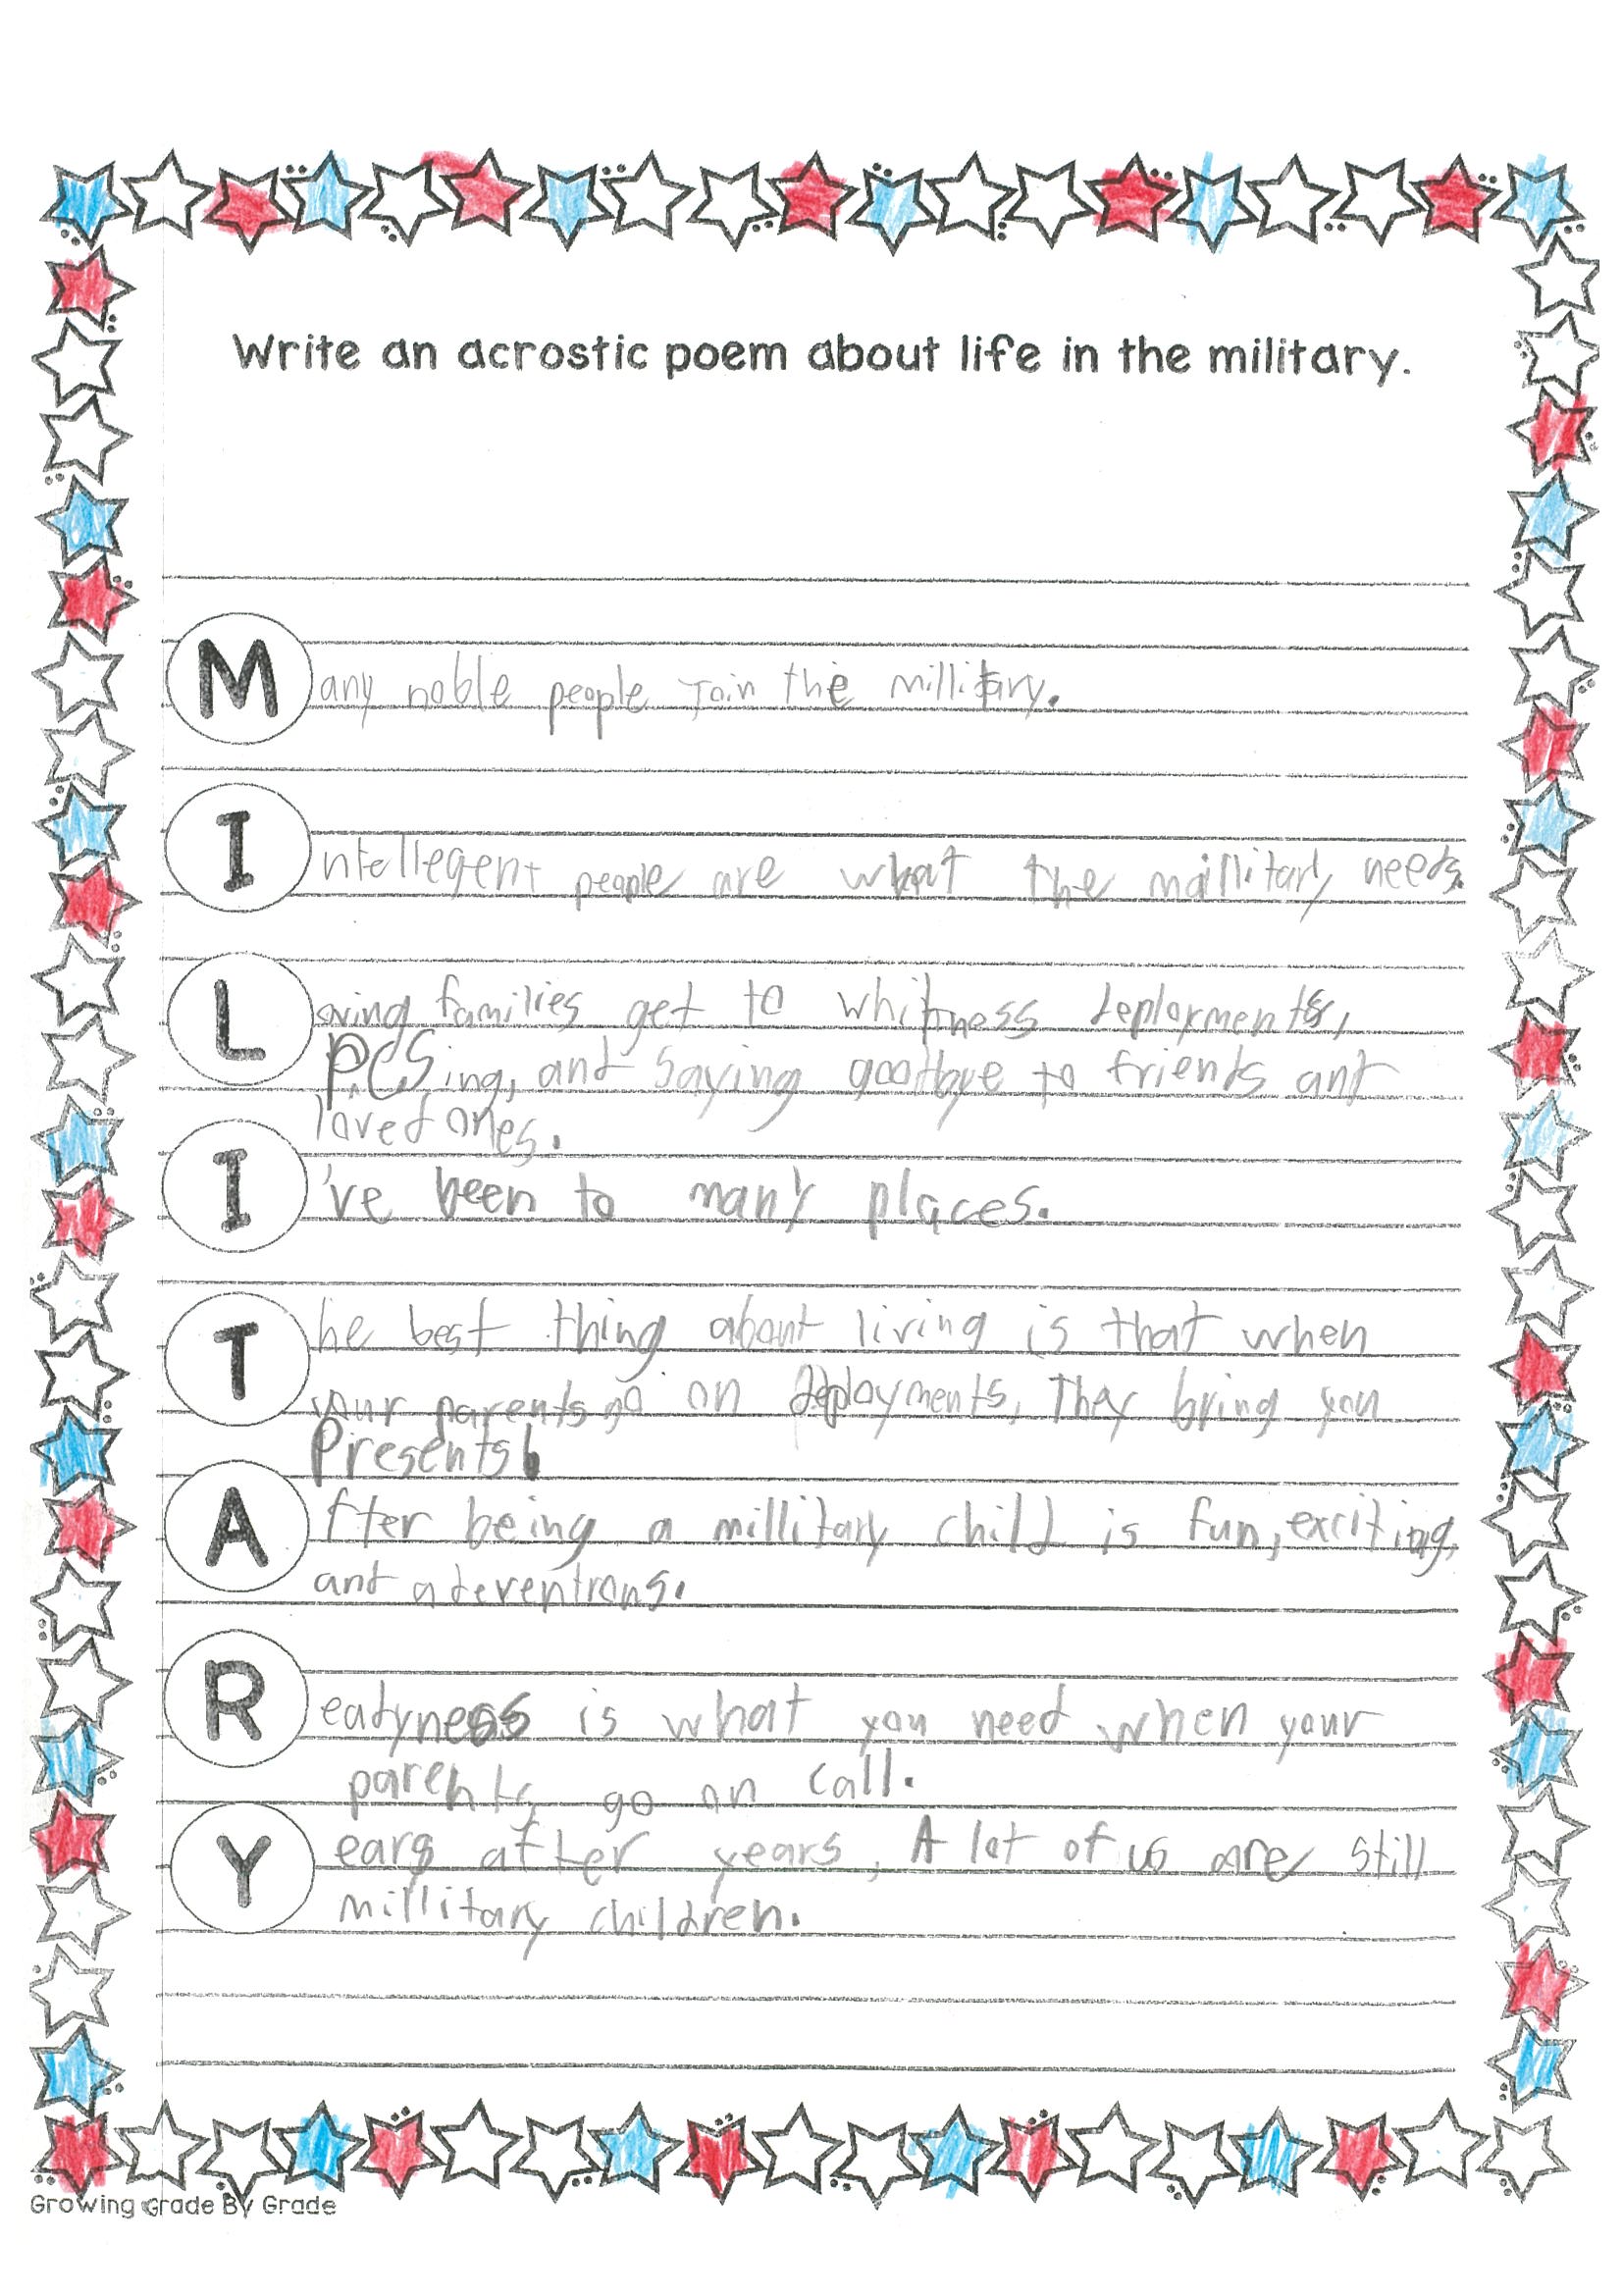 Write an acrostic poem about life in the military.
Many noble people Join the millitary.
Intellegent people are what the millitary needs.
Loving families get to whittness deployments,
PCSing, and saying goodbye to friends and
loved ones.
I've been to many places.
The best thing about living is that when
your parents go on deployments, They bring you
Presents!
After being a millitary child is fun, exciting,
and adeventrous.
Readyness is what you need when your
parents go on call.
Years after years, A lot of us are still
millitary children.
Growing Grade By Grade